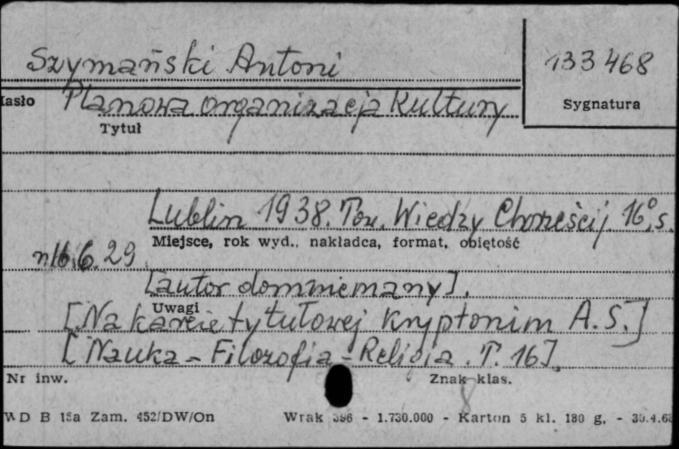 Szymański Antoni
133468
Hasło
Planowa organizacja kultury
Sygnatura
Tytuł
Lublin 1938. Tow. Wiedzy Chrześcij. 16°, s.
Miejsce, rok wyd., nakładca, format, objętość
n16.6.29
[autor domniemany].
Uwagi
[Na karcie tytułowej kryptonim A.S.]
[Nauka - Filozofia - Religia. T. 16].
Nr inw.
Znak klas.
WD B 15a Zam. 452/DW/On
Wrak 396 - 1.730.000 - Karton 5 kl. 180 g. -